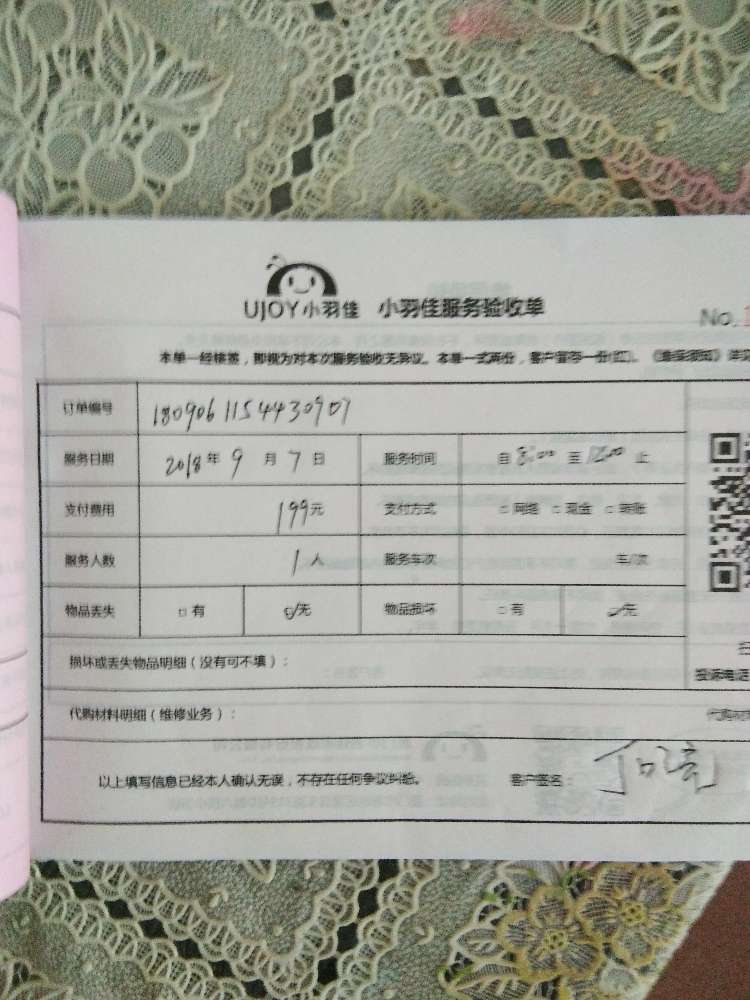 UJOY小羽佳 小羽佳服务验收单
No.
本单一经核签，即视为对本次服务验收无异议。本单一式两份，客户留存一份(红)。
订单编号 180906115443090
服务日期 2018年9月7日 服务时间 自8:00至12:00止
支付费用 199元 支付方式 □网络 □现金 □转账
服务人数 1人 服务车次 车/次
物品丢失 □有 ☑无 物品损坏 □有 ☑无
损坏或丢失物品明细（没有可不填）：
投诉电话
代购材料明细（维修业务）： 代购材
以上填写信息已经本人确认无误，不存在任何争议纠纷。 客户签名：